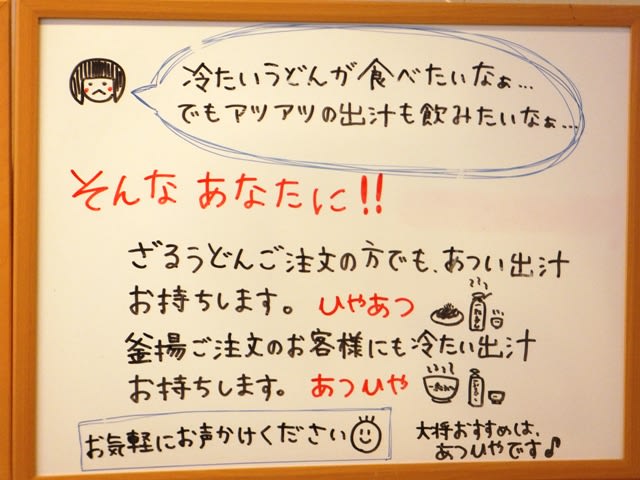 冷たいうどんが食べたいなぁ…
でもアツアツの出汁も飲みたいなぁ…
そんなあなたに!!
ざるうどんご注文の方でも、あつい出汁
お持ちします。 ひやあつ
釜揚ご注文のお客様にも冷たい出汁
お持ちします。 あつひや
お気軽にお声かけください
大将おすすめは、
あつひやです♪